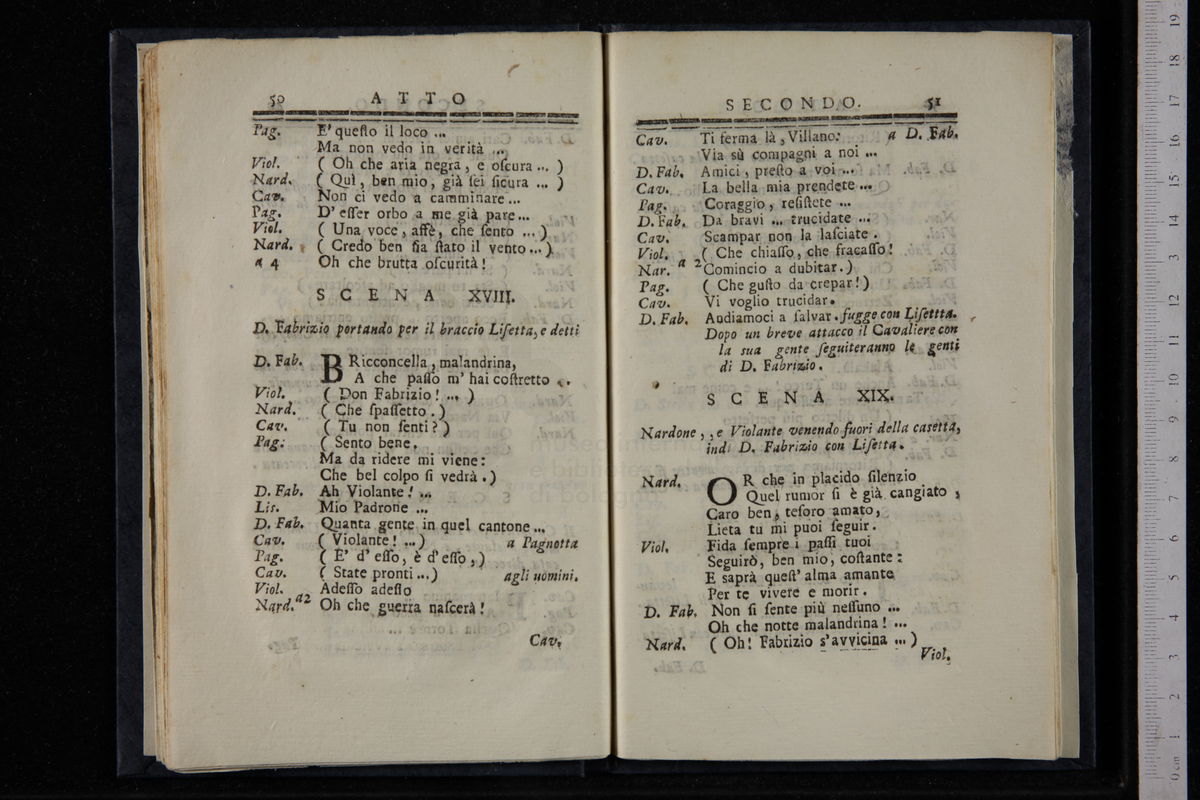 50 ATTO
Pag. E' queſto il loco ...
Ma non vedo in verità ...
Viol. ( Oh che aria negra, e oſcura ... )
Nard. ( Quì, ben mio, già ſei ſicura ... )
Cav. Non ci vedo a camminare ...
Pag. D' eſſer orbo a me già pare ...
Viol. ( Una voce, affè, che ſento ... )
Nard. ( Credo ben ſia ſtato il vento ... )
a 4 Oh che brutta oſcurità!
SCENA XVIII.
D. Fabrizio portando per il braccio Liſetta, e detti
D. Fab. BRicconcella, malandrina,
A che paſſo m' hai coſtretto ..
Viol. ( Don Fabrizio! ... )
Nard. ( Che ſpaſſetto. )
Cav. ( Tu non ſenti? )
Pag. ( Sento bene.
Ma da ridere mi viene:
Che bel colpo ſi vedrà. )
D. Fab. Ah Violante! ...
Lis. Mio Padrone ...
D. Fab. Quanta gente in quel cantone ...
Cav. ( Violante! ... ) a Pagnotta
Pag. ( E' d' eſſo, è d' eſſo, )
Cav. ( State pronti ... ) agli uomini.
Viol. Adeſſo adeſſo
Nard. a2 Oh che guerra naſcerà!
Cav.
SECONDO. 51
Cav. Ti ferma là, Villano: a D. Fab.
Via sù compagni a noi ...
D. Fab. Amici, preſto a voi ...
Cav. La bella mia prendete ...
Pag. Coraggio, reſiſtete ...
D. Fab. Da bravi ... trucidate ...
Cav. Scampar non la laſciate.
Viol. ( Che chiaſſo, che fracaſſo!
Nar. a 2 Comincio a dubitar. )
Pag. ( Che guſto da crepar! )
Cav. Vi voglio trucidar.
D. Fab. Andiamoci a ſalvar. fugge con Liſettta.
Dopo un breve attacco il Cavaliere con
la sua gente ſeguiteranno le genti
di D. Fabrizio.
SCENA XIX.
Nardone, , e Violante venendo fuori della caſetta,
indi D. Fabrizio con Liſetta.
Nard. OR che in placido ſilenzio
Quel rumor ſi è già cangiato,
Caro ben, teſoro amato,
Lieta tu mi puoi ſeguir.
Viol. Fida ſempre i paſſi tuoi
Seguirò, ben mio, coſtante:
E saprà queſt' alma amante
Per te vivere e morir.
D. Fab. Non ſi ſente più neſſuno ...
Oh che notte malandrina! ...
Nard. ( Oh! Fabrizio s'avvicina ... )
Viol.